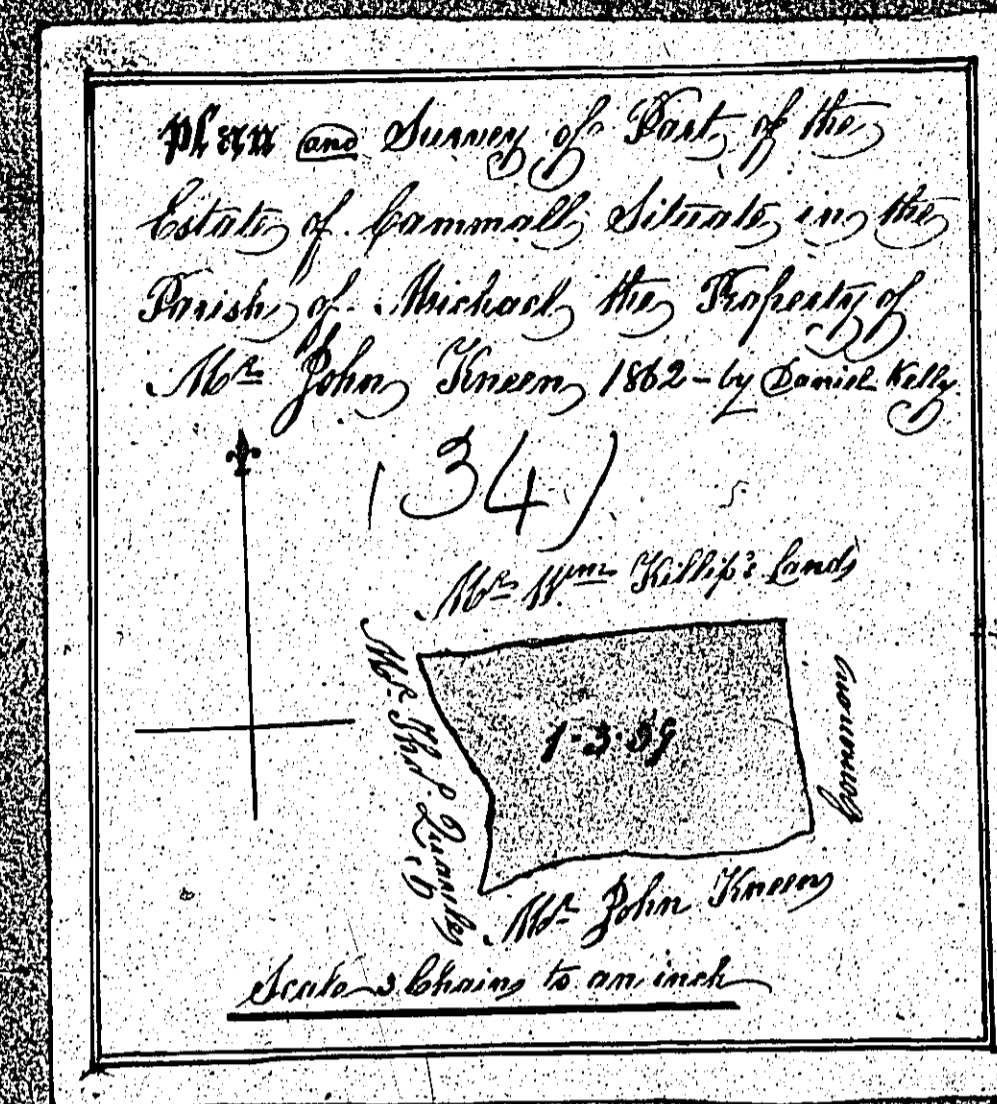 Plan and Survey of Part of the
Estate of Cammall Situate in the
Parish of Michael the Property of
Mr John Kneen 1862 - by Daniel Kelly.
(34)
Mr Wm Killip's Lands
Mr Thos
1-3-39
Common
Mr John Kneen
Scale 3 Chains to an inch